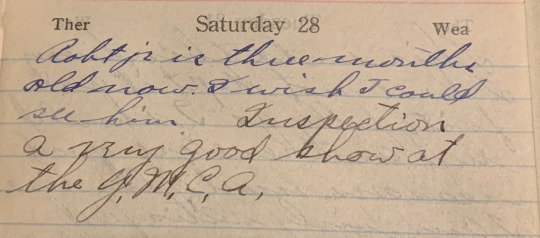 Ther Saturday 28 Wea
Robt jr is three months
old now. I wish I could
see him. Inspection
a very good show at
the Y.M.C.A.